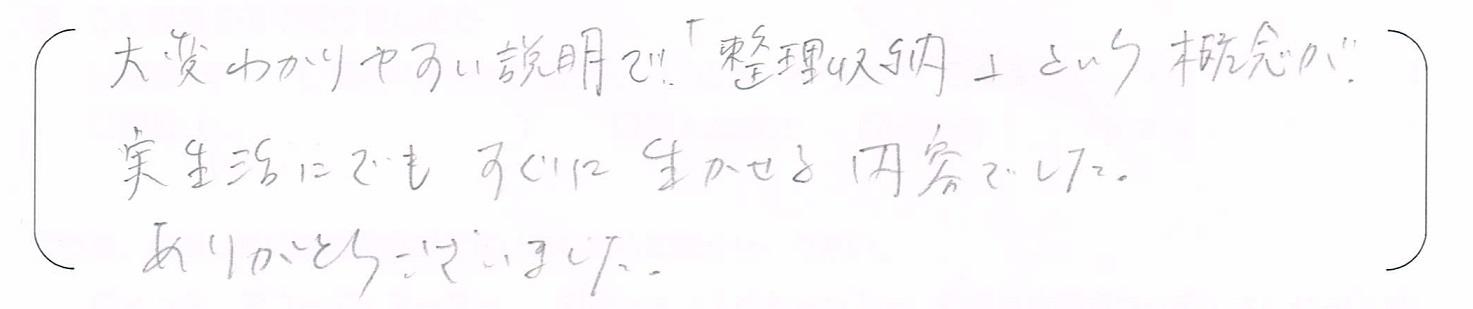 大変わかりやすい説明で「整理収納」という概念が
実生活にでもすぐに生かせる内容でした。
ありがとうございました。